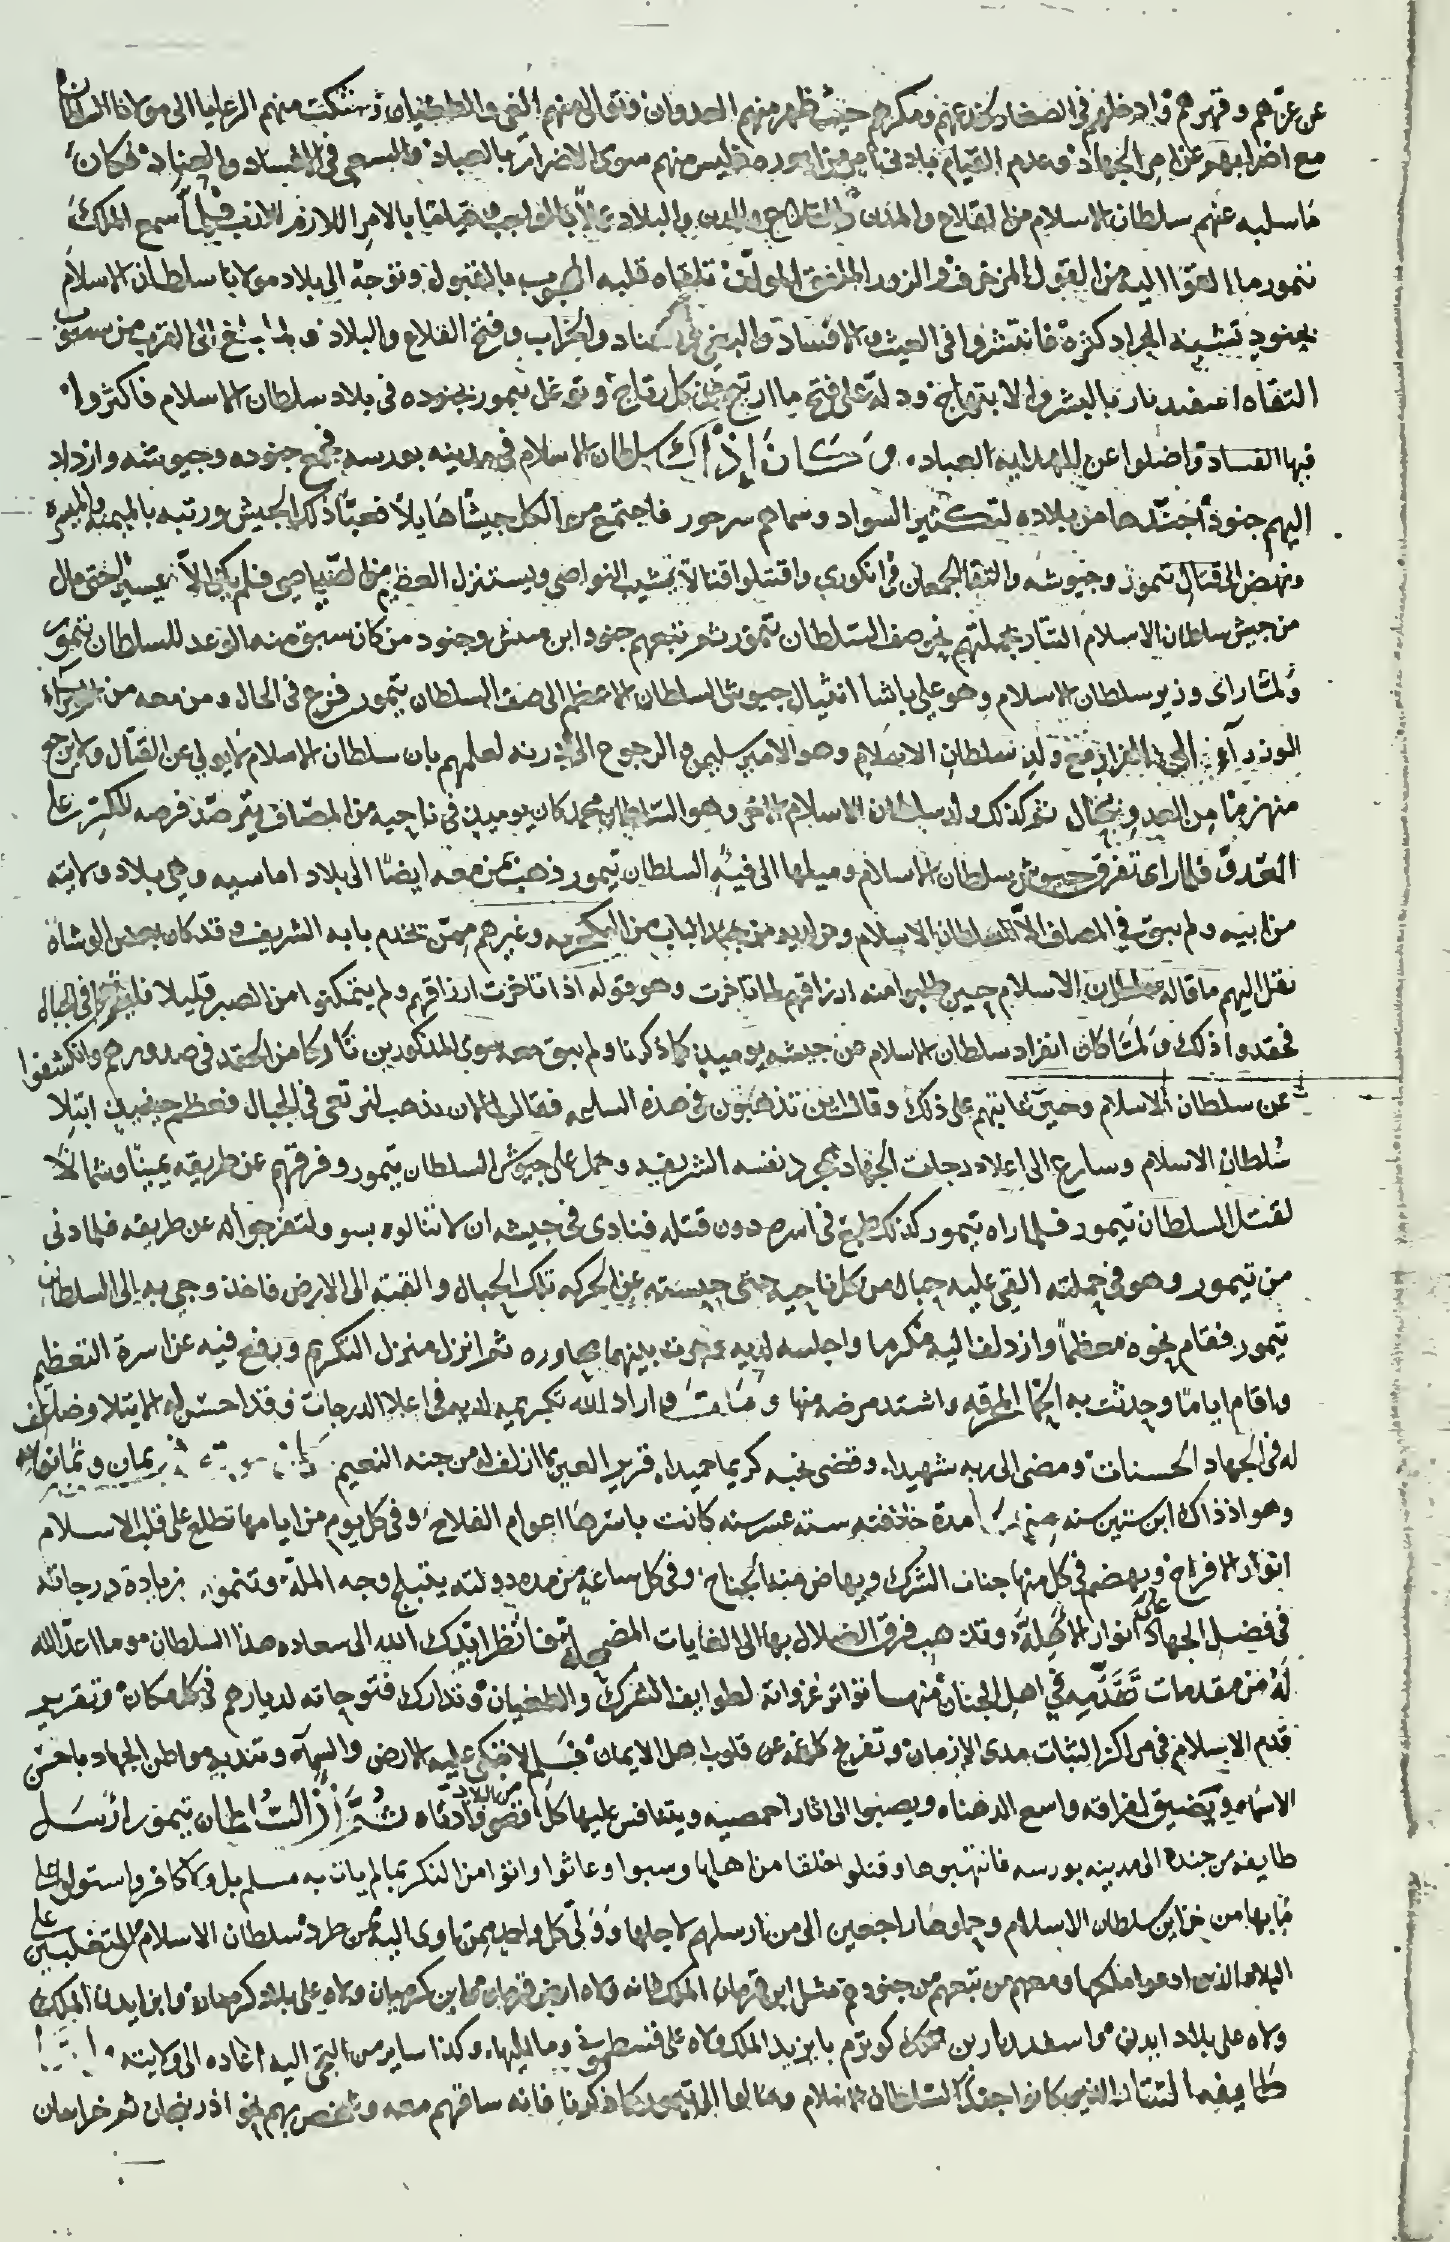 عن عزهم وقهرهم واد ظهرهم في الصغار كونه عنهم ومكرهم حيث ظهر منهم العدوان وتوالى منهم البغى والطغيان وشكت منهم الرعايا الى مولانا السلطان
مع اضرابهم عن امر الجهاد وعدم القيام بادنى من اموره فليس منهم سوى الاضرار بالعباد والسعى في الافساد والعناد فكان
ما سلبه عنهم سلطان الاسلام من القلاع والمدن والبلاد عملا بالواجب وقياما بالامر اللازم فلما سمع الملك
تيمور ما القوا اليه من القول المزخرف والزور الملفق المؤلف تلقاه قلبه بالقبول وتوجه الى بلاد مولانا سلطان الاسلام
بجنود تشبه الجراد كثرة فانتشروا في العيث والافساد والبغى والعناد والخراب وفتح القلاع والبلاد ولما بلغ الى القرب من
التقاه اسفنديار بالبشر والابتهاج ودله على فتح ما ارتج من كل رتاج وتوغل تيمور بجنوده في بلاد سلطان الاسلام فاكثروا
فيها الفساد واضلوا عن الهدايه العباد وكان اذ ذاك سلطان الاسلام في مدينه بورسه فجمع جنوده وجيوشه وازداد
اليهم جنودا جندها من بلاده لتكثير السواد وسماهم سرحور فاجتمع من الكل جيشا هايلا فعبا ذلك الجيش ورتبه بالميمنه والميسره
ونهض الى قتال تيمور وجيوشه والتقا الجمعان في انكوري واقتتلوا قتالا يشيب النواصي ويستنزل العظيم من الصياصي فلم يكن الا يسير حتى مال
من جيش سلطان الاسلام التتار بجملتهم نحو صف السلطان تيمور ثم تبعهم جنود ابن منتش وجنود من كان سبق منه الوعد للسلطان تيمور
ولما راى وزير سلطان الاسلام وهو علي باشا انثيال جيوش السلطان الاعظم الى صف السلطان تيمور فزع في الحال ومن معه من
الوزرآء الى الفرار مع ولد سلطان الاسلام وهو الامير سليمن الرجوع الى ادرنه لعلمهم بان سلطان الاسلام لا يولي عن القتال ولا يرجع
منهزما من العدو بحال ثم كذلك ولد سلطان الاسلام الاخر وهو السلطان محمد كان يوميذ في ناحيه من المصاف يترصد فرصه للكر على
العدو فلما راى تفرق جيوش سلطان الاسلام وميلها الى فية السلطان تيمور ذهب بمن معه ايضا الى بلاد اماسيه وهي بلاد ولايته
من ابيه ولم يبق في المصاف الا سلطان الاسلام ومن لديه من عبيد الباب من الينكجريه وغيرهم ممن تخدم بابه الشريف وقد كان بعض الوشاة
نقل اليهم ما قاله سلطان الاسلام حين طلبوا منه ارزاقهم لما تاخرت وهو قوله اذا تاخرت ارزاقهم ولم يتمكنوا من الصبر قليلا فليرعوا في الجبال
فحقدوا ذلك ولما كان انفراد سلطان الاسلام من جيشه يوميذ كما ذكرنا ولم يبق معه سوى المذكورين ثار كامن الحقد في صدورهم وانكشفوا
عن سلطان الاسلام وحين عاتبهم على ذلك وقال اين تذهبون في هذه الساعه فقالوا الان نذهب لنرتعى في الجبال فعظم حينيذ ابتلا
سلطان الاسلام وسارع الى اعلاء درجات الجهاد بمجرد نفسه الشريفه وحمل على جيوش السلطان تيمور وفرقهم عن طريقه يمينا وشمالا
لقتل السلطان تيمور فلما راه تيمور كذلك طمع في اسره دون قتله فنادى في جيشه ان لا تنالوه بسو ولتفرجوا له عن طريقه فلما دنى
من تيمور وهو في حملته القي عليه حبال من كل ناحيه حتى حبسته عن الحركه تلك الحبال والقته الى الارض فاخذ وجي به الى السلطان
تيمور فقام نحوه معظما وازدلف اليه مكرما واجلسه لديه وجرت بينهما محاوره ثم انزل منزل التكريم ورفع فيه عن اسرة التعظيم
واقام اياما وحدثت به الحمى المحرقه واشتد مرضه منها ومات واراد الله تكريمه لديه في اعلا الدرجات وقد احسن له الابتلا وضاعف
له في الجهاد الحسنات ومضى الى ربه شهيدا وقضى نحبه كريما حميدا قرير العين بما ازلف له من جنه النعيم ثمان وثمانمايه
وهو اذ ذاك ابن ستين سنه مدة خلافته سته عشر سنه كانت باسرها اعوام الفلاح وفي كل يوم من ايامها تطلع على قلب الاسلام
انوار الافراح ويهضم في كل منها جناب الشرك ويهاض منه الجناح وفي كل ساعة من مده دولته يتبلج وجه المله وتنمو بزيادة درجاته
في فضل الجهاد على انوار الاهلة وتذهب فرق الضلال بها الى الغايات المضمحلة فانظر ايدك الله الى سعاده هذا السلطان وما اعد الله
له من مقدمات تقدمه في اهل الجنان منها تواتر غزواته لطوايف الشرك والطغيان وتدارك فتوحاته لديارهم في كل مكان وتقرير
قدم الاسلام في مراكز الثبات مدى الازمان وتفريج كل غمه عن قلوب اهل الايمان فلم لا تبكي عليه الارض والسمآء وتندبه مواطن الجهاد باحسن
الاسماء ويضيق لفراقه واسع الدهناه ويصبحا الى اثار اخمصيه ويتنافس عليها كل اقصى من البلاد وادناه ثم ان السلطان تيمور ارسل
طايفه من جنده الى مدينه بورسه فانتهبوها وقتلوا خلقا من اهلها وسبوا وعاثوا واتوا من النكر بما لم يات به مسلم بل ولا كافر واستولوا على
ما بها من خزاين سلطان الاسلام وحملوها راجعين الى من ارسلهم لاجلها وولى كل واحد ممن اوى اليه من طرده سلطان الاسلام المتغلبين على
البلاد الذين ادعوا ملكها ومعهم من تبعهم من جنودهم مثل ابن قرمان الملك فانه ولاه ارض قرمان وابن كرميان ولاه على بلاد كرميان وابن ايدين الملك
ولاه على بلاد ايدين واسفنديار بن كوتروم بايزيد الملك ولاه على قسطموني وما اليها وكذا ساير من التجى اليه اعاده الى ولايته
طايفه التتار الذين كانوا جند السلطان الاسلام ومالوا الى تيمور كما ذكرنا فانه ساقهم معه ونهض بهم نحو اذربيجان ثم خراسان